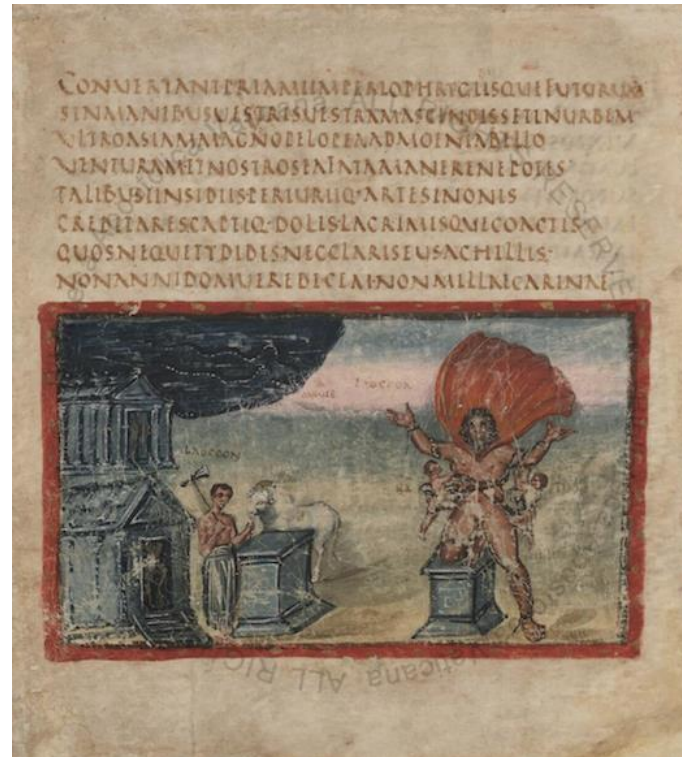 CONVERTANTPRIAMIIMPERIOPHRYGIISQUEFUTURUM
SINMANIBUSUESTRISUESTRAMASCENDISSETINURBEM
ULTROASIAMMAGNOPELOPEAADMOENIABELLO
UENTURAMETNOSTROSEAFATAMANERENEPOTES
TALIBUSINSIDIISPERIURIIQ·ARTESINONIS
CREDITARESCAPTIQ·DOLISLACRIMISQUECOACTIS
QUOSNEQUETYDIDESNECCLARISEUSACHILLIS·
NONANNIDOMUEREDECEMNONMILLAECARINAE
LAOCOON
LAOCOON